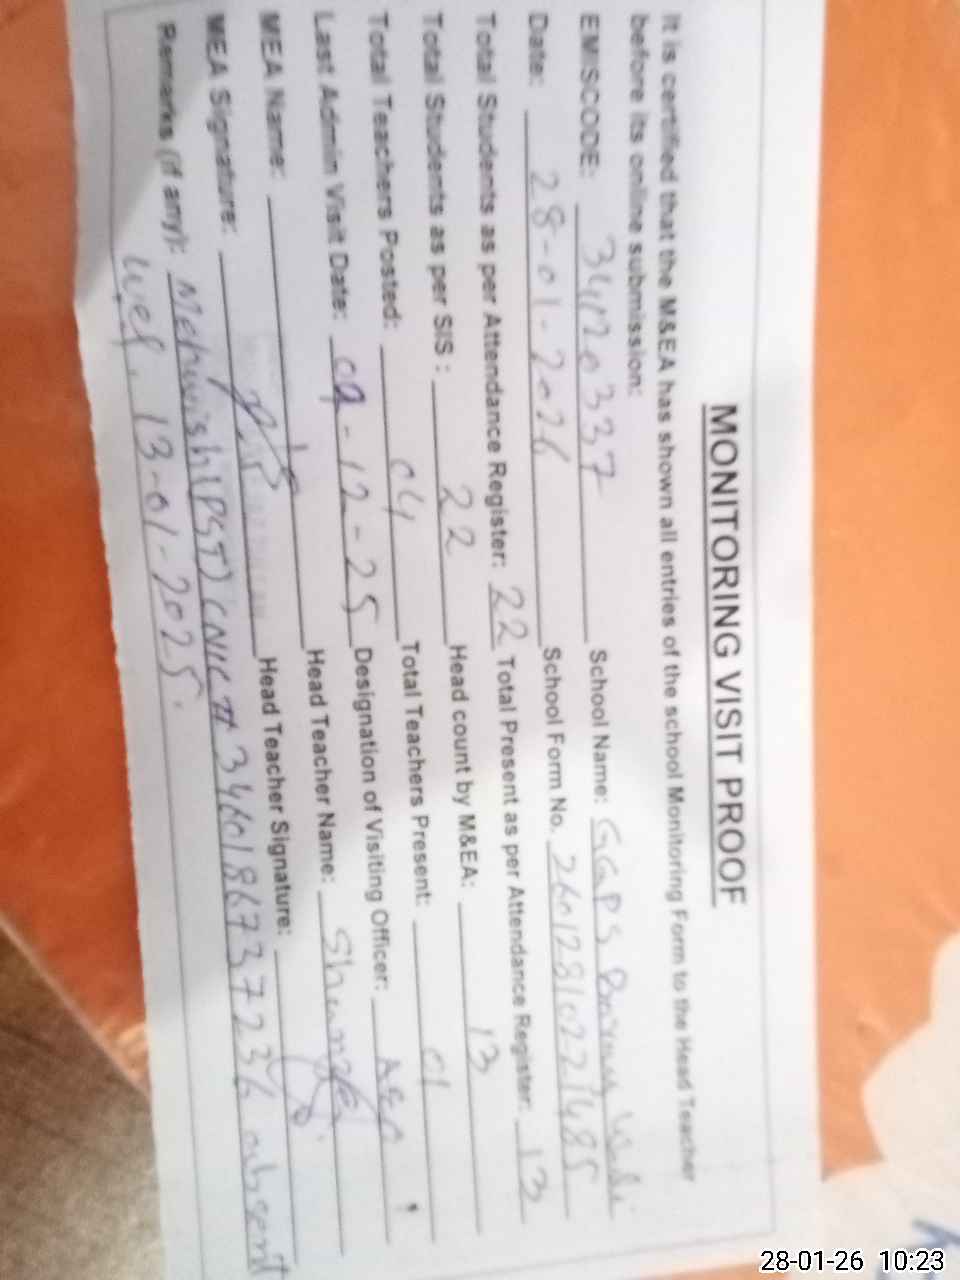 MONITORING VISIT PROOF
It is certified that the M&EA has shown all entries of the school Monitoring Form to the Head Teacher
before its online submission:
EMISCODE: 34120337 School Name: GGPS
Date: 28-01-2026 School Form No. 26012810221485
Total Students as per Attendance Register: 22 Total Present as per Attendance Register: 13
Total Students as per SIS: 22 Head count by M&EA: 13
Total Teachers Posted: 04 Total Teachers Present: 01
Last Admin Visit Date: 09-12-25 Designation of Visiting Officer: AEO
MEA Name: Head Teacher Name:
MEA Signature: Head Teacher Signature:
Remarks (if any): Mehwish (PST) CNIC # 3460186737236 absent
wef. 13-01-2025.
28-01-26 10:23